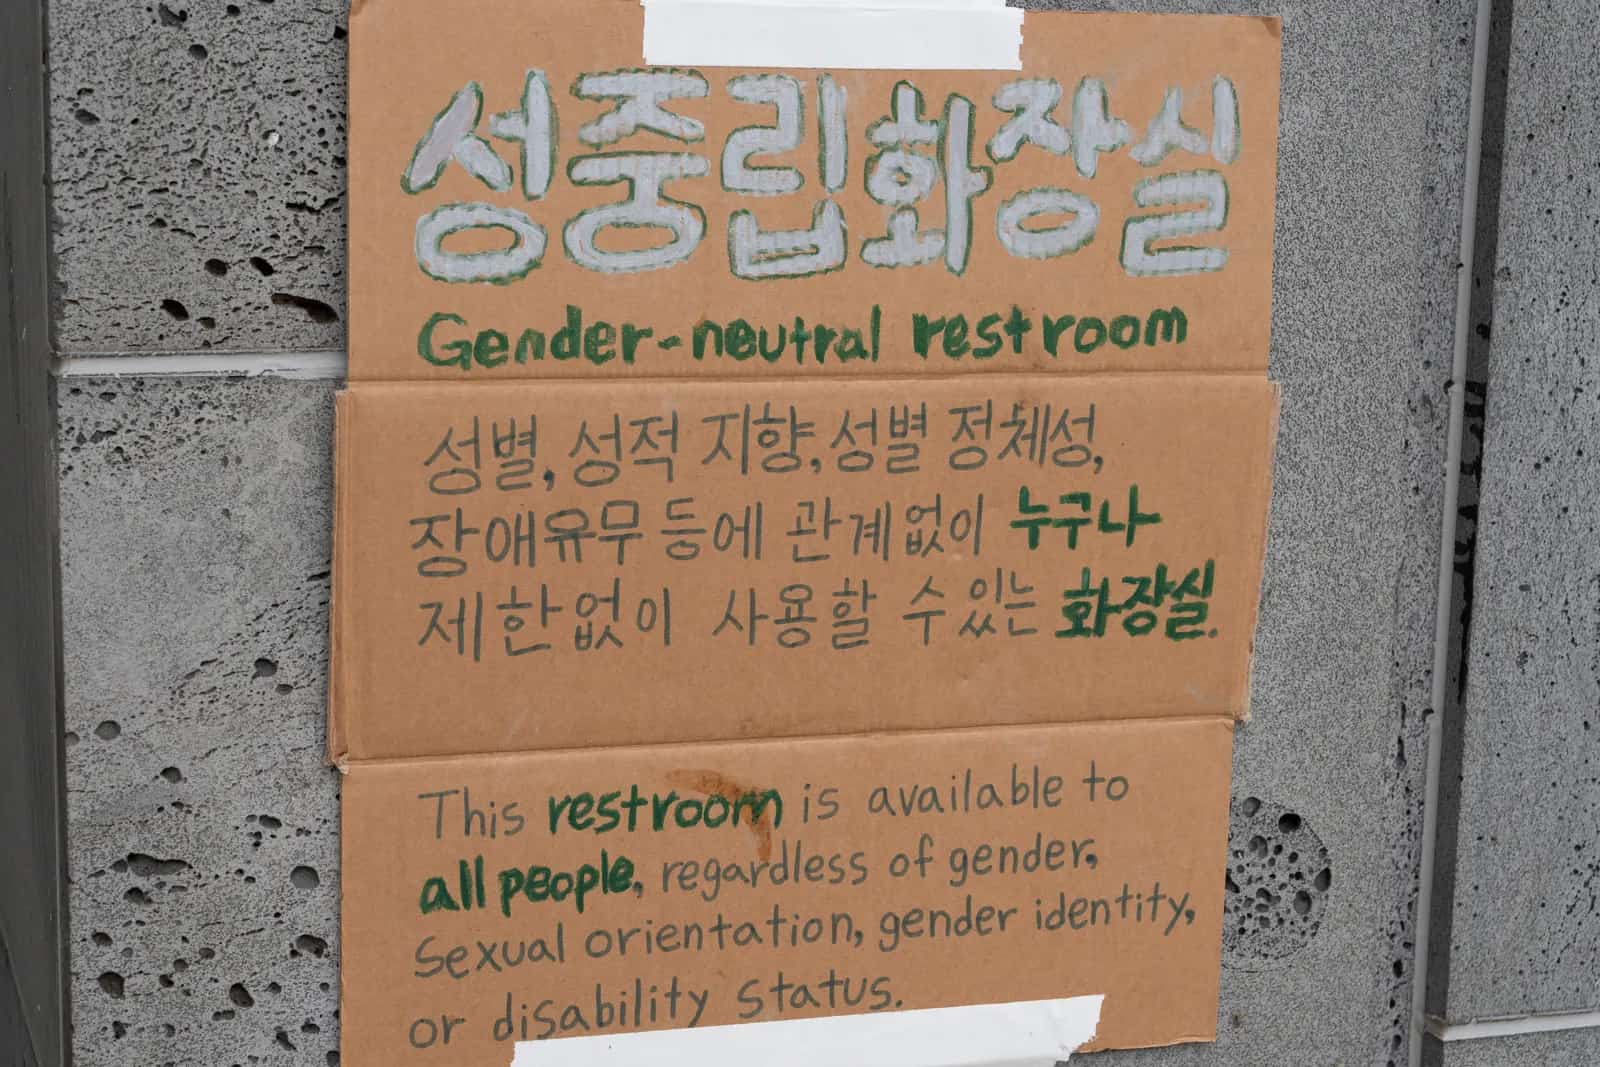 성중립화장실
Gender-neutral restroom
성별, 성적 지향, 성별 정체성,
장애유무 등에 관계없이 누구나
제한없이 사용할 수 있는 화장실.
This restroom is available to
all people, regardless of gender,
sexual orientation, gender identity,
or disability status.